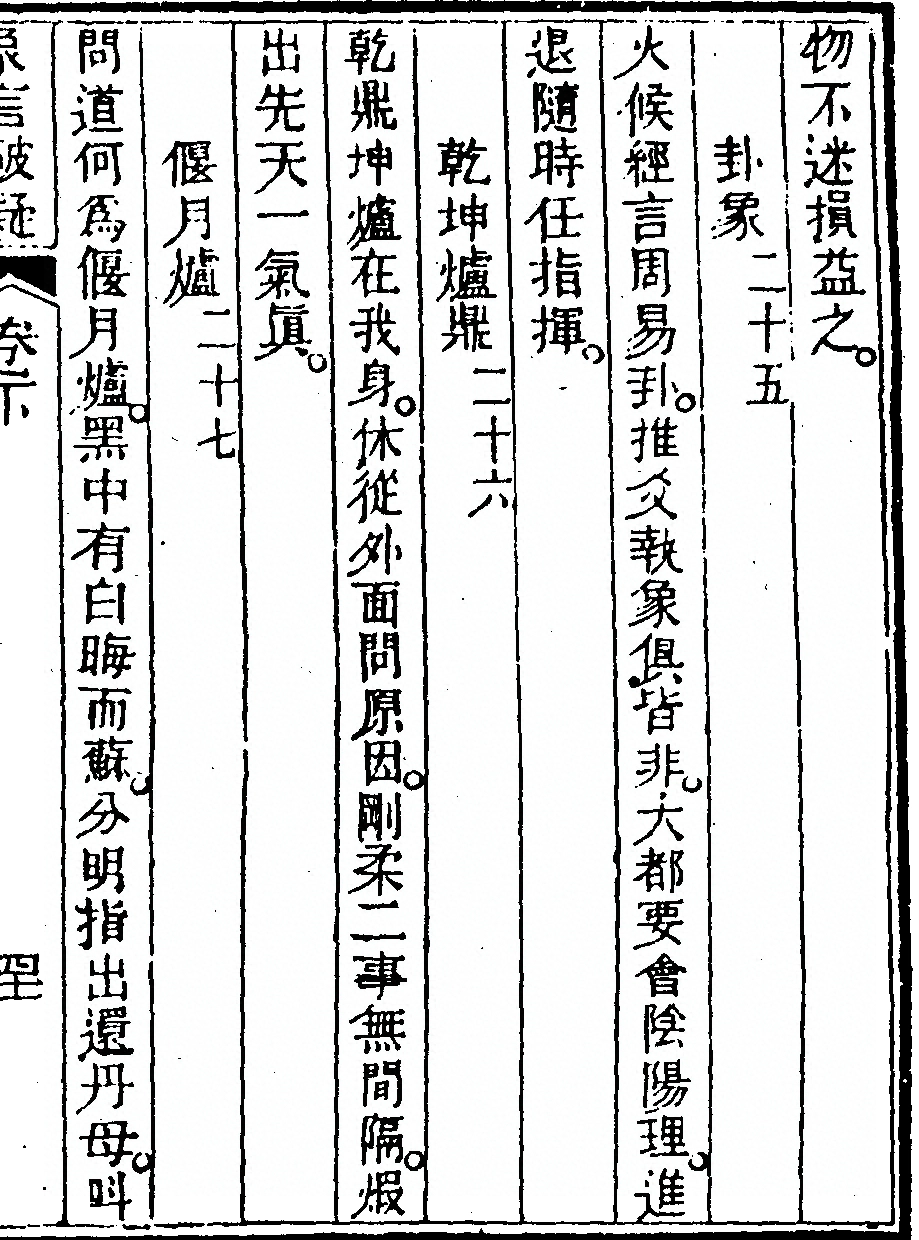 物不迷損益之。
卦象二十五
火候經言周易卦。推爻執象俱皆非。大都要會陰陽理。進
退隨時任指揮。
乾坤爐鼎二十六
乾鼎坤爐在我身。休從外面問原因。剛柔二事無間隔。煆
出先天一氣眞。
偃月爐二十七
問道何爲偃月爐。黑中有白晦而蘇。分明指出還丹母。叫
象言破疑 卷下